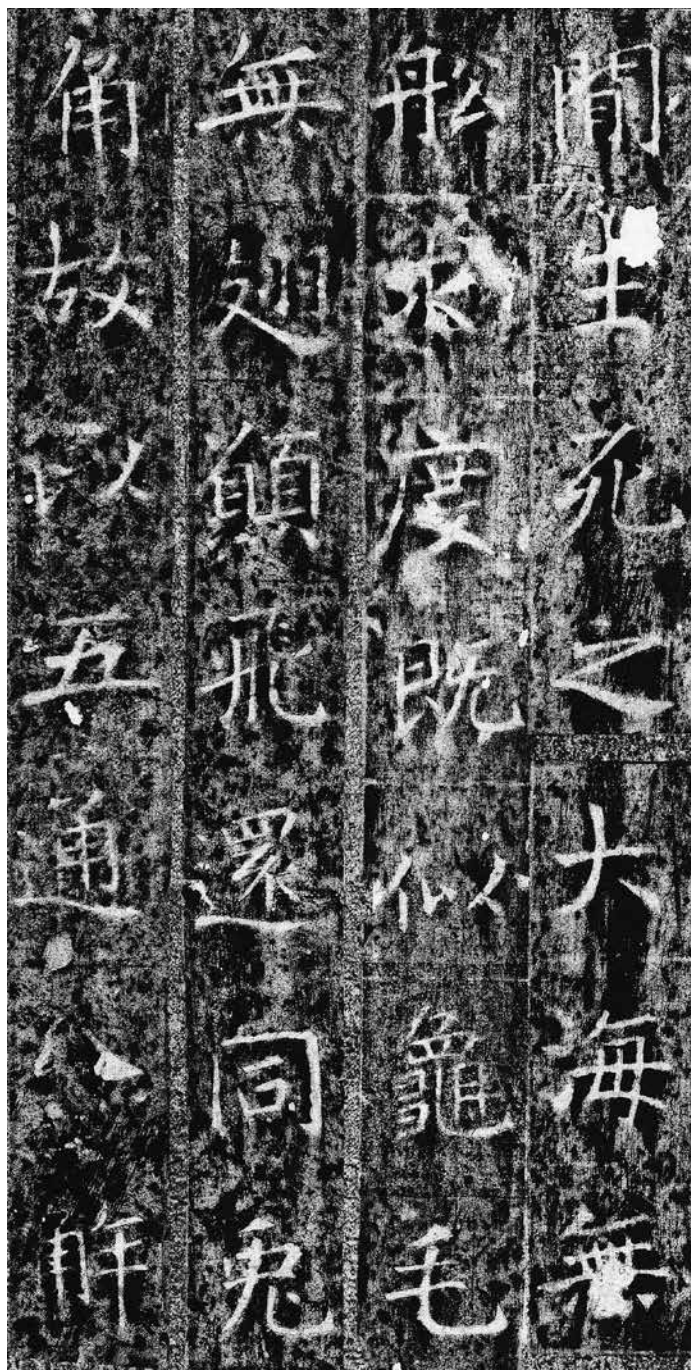 間生死之大海無
船求度既似龜毛
無翅願飛還同兔
角故以五通八解